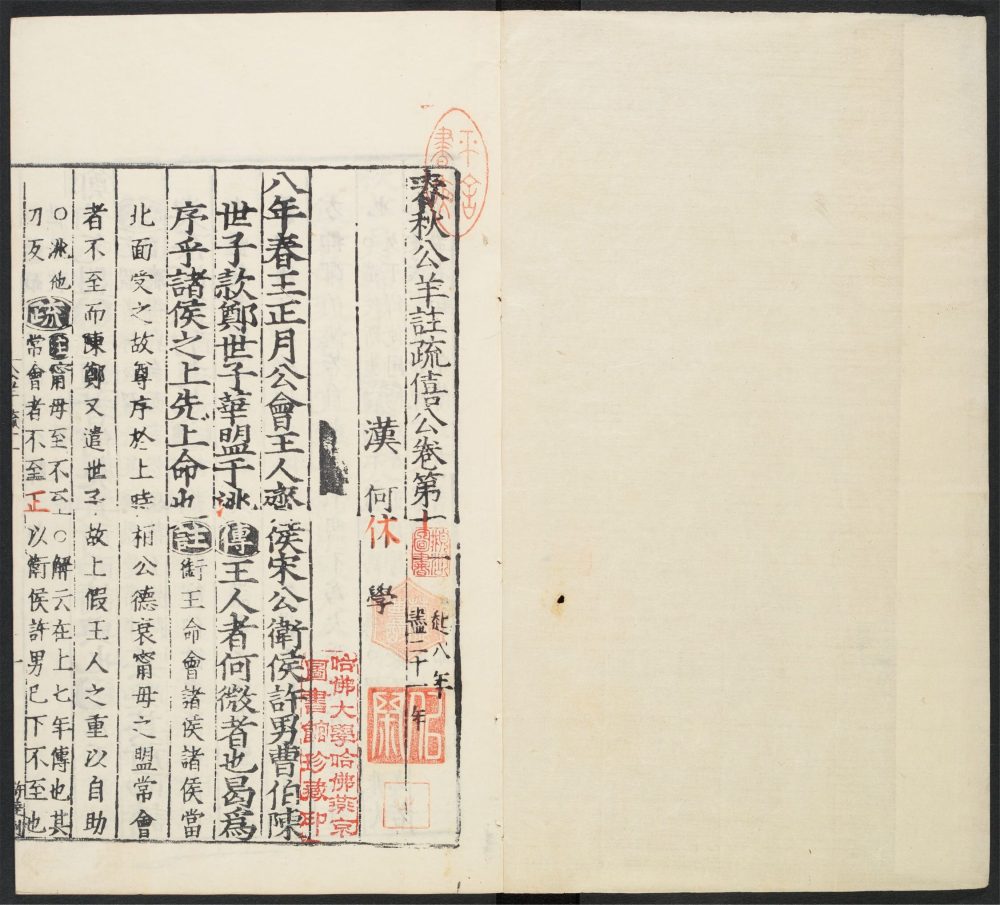 春秋公羊註疏僖公卷第十一
起八年
盡二十一年
漢 何休 學
八年春王正月公會王人齊侯宋公衛侯許男曹伯陳
世子款鄭世子華盟于洮傳王人者何微者也曷爲
序乎諸侯之上先王命也註銜王命會諸侯諸侯當
北面受之故尊序於上時桓公德衰甯毋之盟常會
者不至而陳鄭又遣世子故上假王人之重以自助
○洮他
刀反
疏
註甯毋至不至○解云在上七年傳也其
常會者不至正以衛侯許男已下不至也
哈佛大學哈佛燕京
圖書館珍藏印